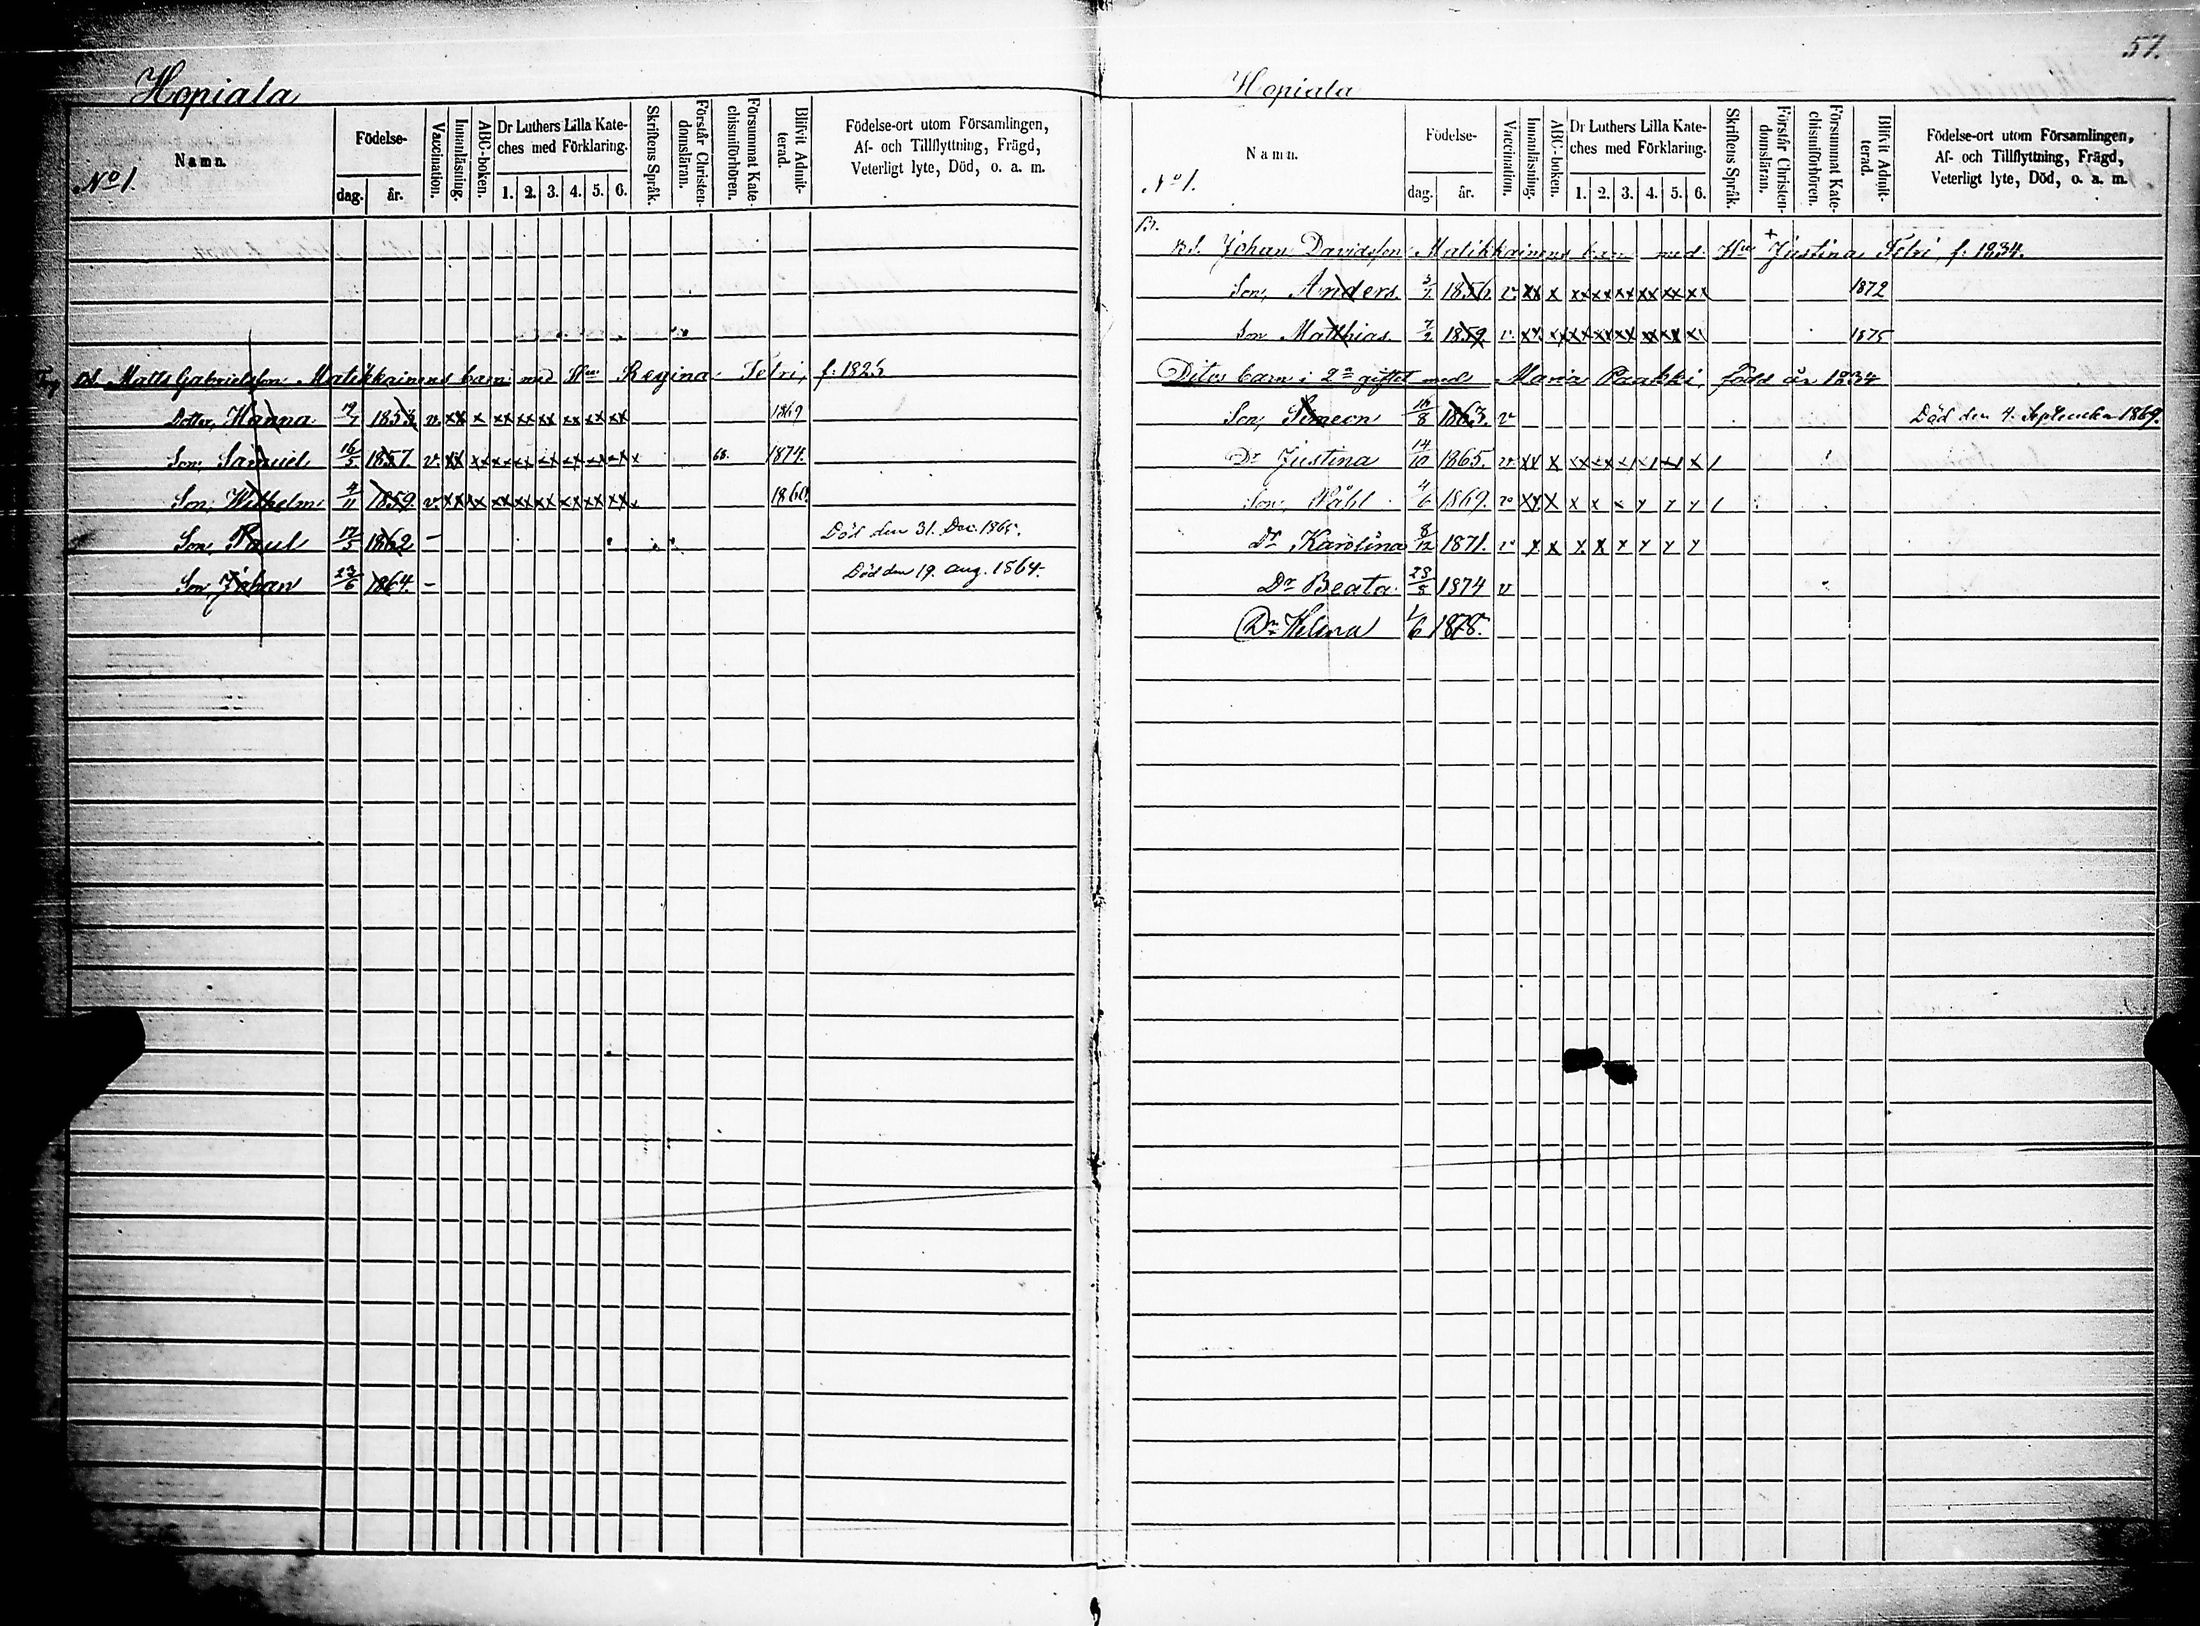 57.
Hopiala
No 1. Namn. Födelse- dag. år. Vaccination. Innanläsning. ABC-boken. Dr Luthers Lilla Kateches med Förklaring. 1. 2. 3. 4. 5. 6. Skriftens Språk. Förstår Christendomsläran. Försummat Katechismiförhören. Blifvit Admitterad. Födelse-ort utom Församlingen, Af- och Tillflyttning, Frägd, Veterligt lyte, Död, o. a. m.
Matts Gabrielsson Matikkainens barn med Hu Regina Tetri, f. 1823
Dotter, Hanna 19/7 1853 v. xx x xx xx xx xx xx xx 1869
Son, Samuel 16/5 1857. v. xx xx xx xx xx xx xx xx x 68. 1874.
Son, Wilhelm 4/11 1859. v. xx xx xx xx xx xx xx xx x
Son, Paul 17/5 1862 – Död den 31. Dec. 1865.
Son, Johan 23/6 1864. – Död den 19. aug. 1864.
Hopiala
No 1. Namn. Födelse- dag. år. Vaccination. Innanläsning. ABC-boken. Dr Luthers Lilla Kateches med Förklaring. 1. 2. 3. 4. 5. 6. Skriftens Språk. Förstår Christendomsläran. Försummat Katechismiförhören. Blifvit Admitterad. Födelse-ort utom Församlingen, Af- och Tillflyttning, Frägd, Veterligt lyte, Död, o. a. m.
B.
Johan Davidsson Matikkainens barn med Hu + Justina Tetri, f. 1834.
Son, Anders 1856. v. xx x xx xx xx xx xx xx 1872
Son Matthias 7/2 1859. v. xx xx xx xx xx xx xx 1875
Ditos barn i 2a giftet med Maria Paakki, född år 1834
Son, Simeon 18/8 1863. v Död den 4. September 1869.
Dr Justina 14/10 1865. v xx x xx xx x/ x/ x/ x /
Son, Påhl 4/6 1869. v xx x x x x y y y /
Dr Karolina 8/12 1871. v x x x x x y y y
Dr Beata 23/5 1874 v
Dr Helena 1/6 1878.